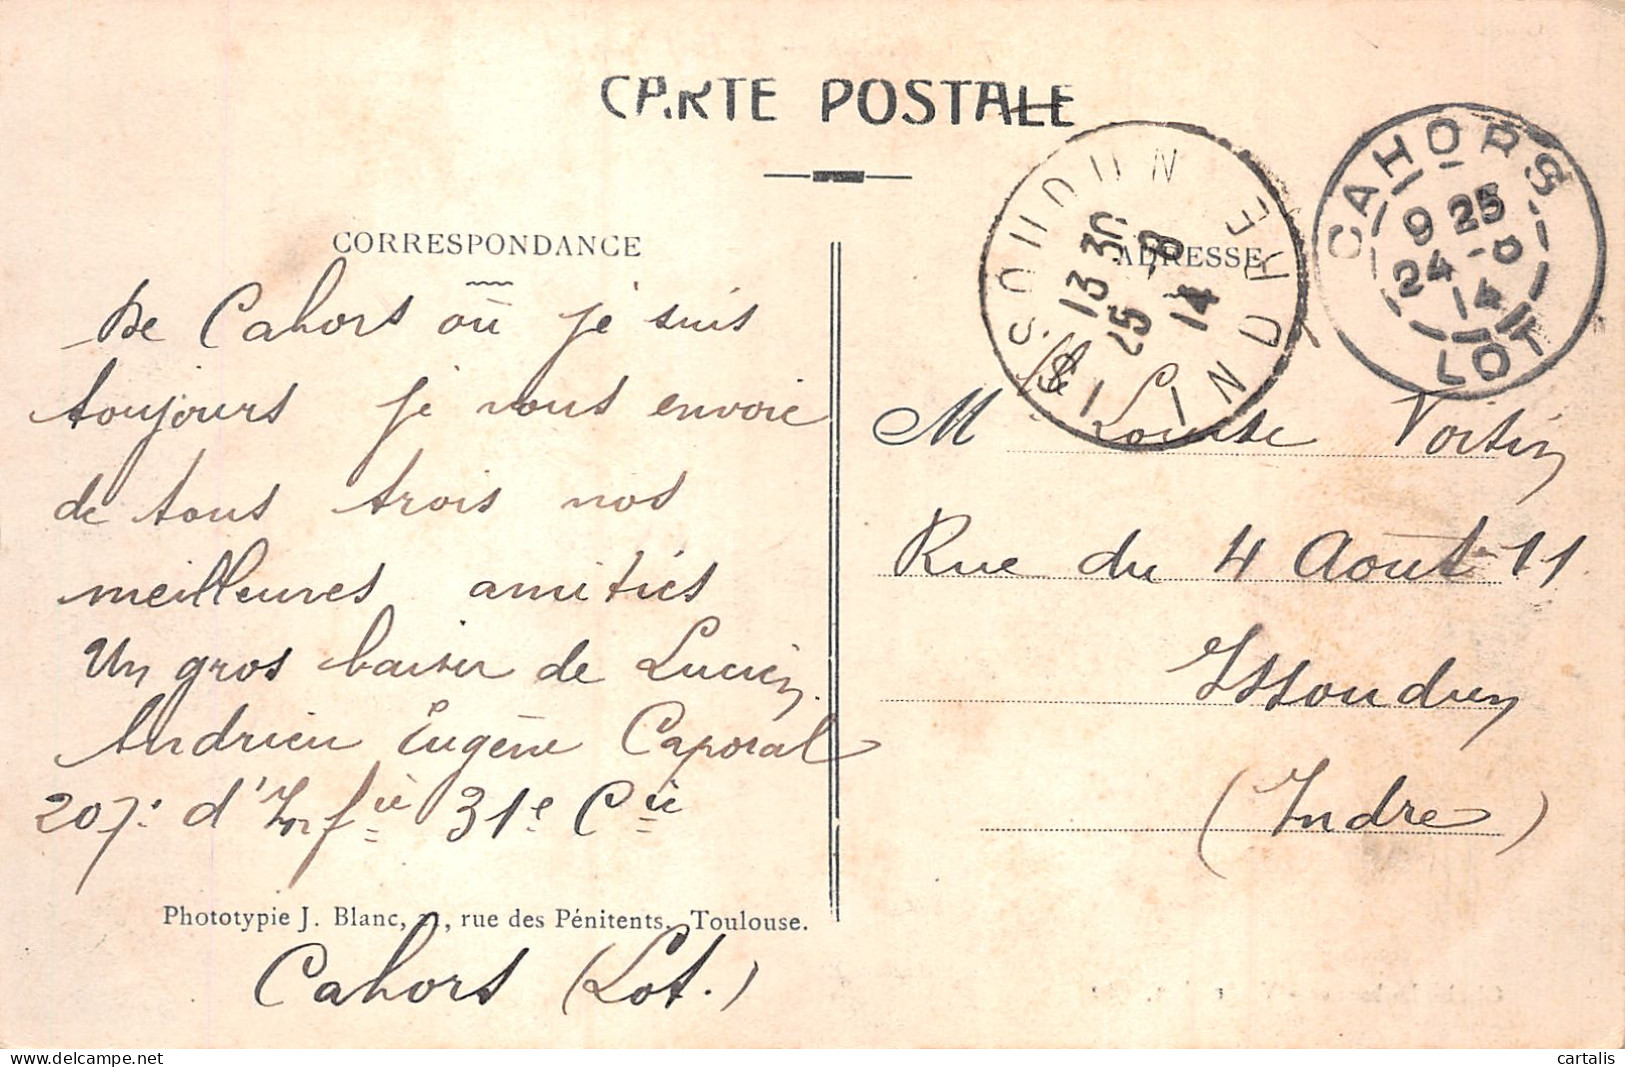 CARTE POSTALE
CORRESPONDANCE
De Cahors où je suis
toujours je vous envoie
de tous trois nos
meilleures amitiés
Un gros baiser de Lucien
Andrieu Eugène Caporal
207e d'Infie 31e Cie
Phototypie J. Blanc, rue des Pénitents, Toulouse.
Cahors (Lot.)
ISSOUDUN
INDRE
13 30
25 -8
14
CAHORS
9 25
24 -8
14
LOT
ADRESSE
M Louise Voisin
Rue du 4 Août 11
Issoudun
(Indre)
cartalis